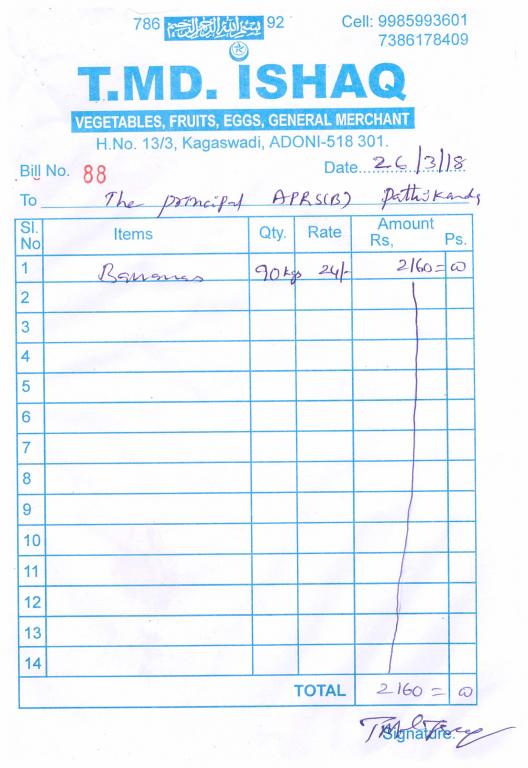 786 بسم الله الرحمن الرحيم 92
Cell: 9985993601
7386178409
T.MD. ISHAQ
VEGETABLES, FRUITS, EGGS, GENERAL MERCHANT
H.No. 13/3, Kagaswadi, ADONI-518 301.
Bill No. 88 Date 26/3/18
To The principal APRS(B)
Sl. No Items Qty. Rate Amount Rs, Ps.
1 Bananas 90 kgs 24/- 2160 = 00
2
3
4
5
6
7
8
9
10
11
12
13
14
TOTAL 2160 = 00
Signature.